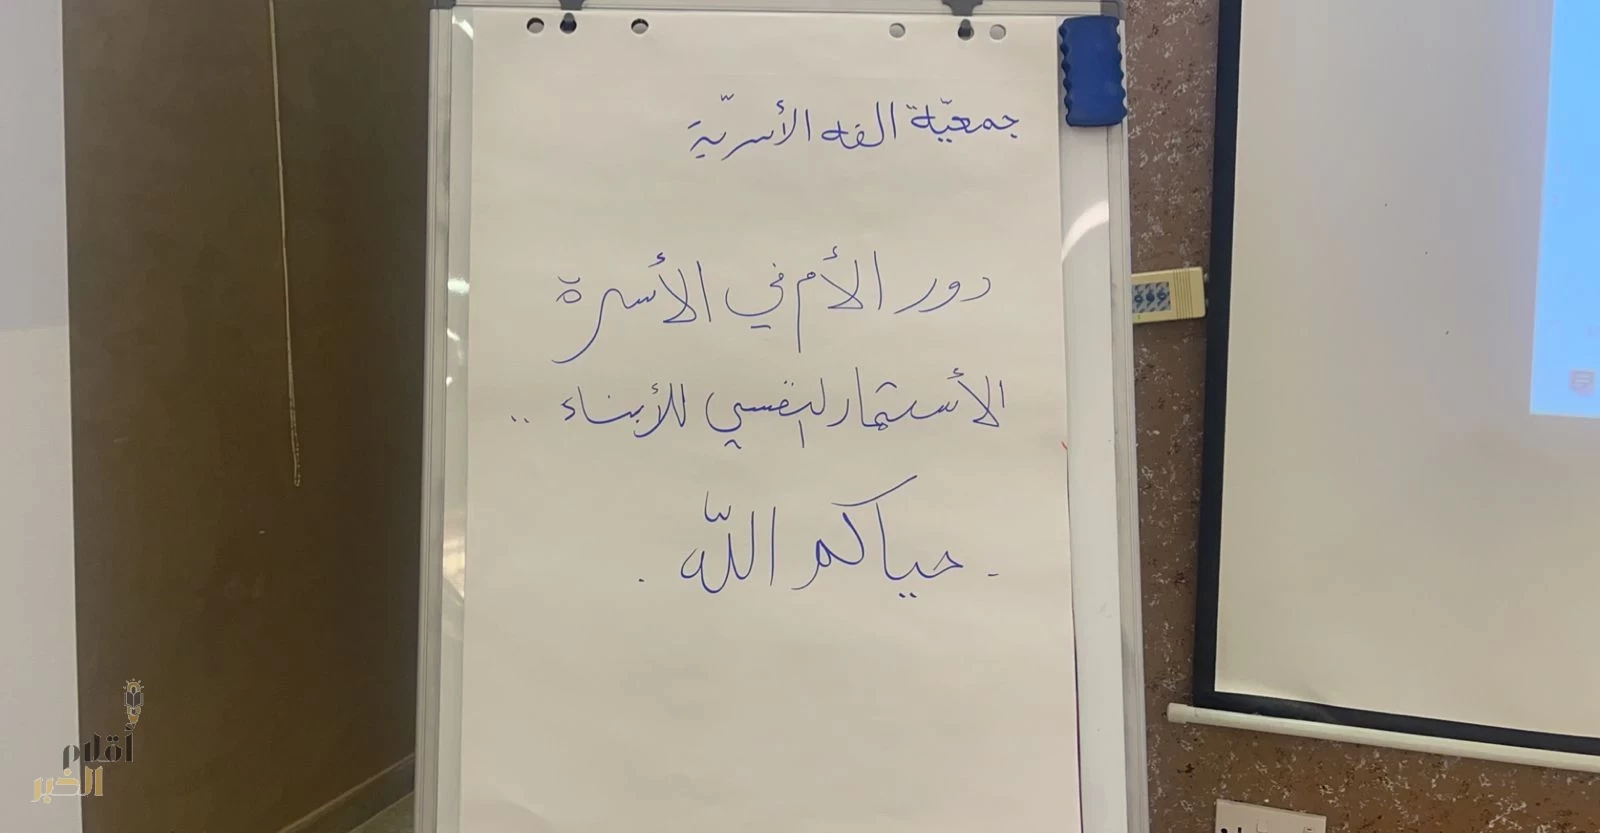 جمعيّة الفه الأسريّة
دور الأم في الأسرة
الأستثمار النفسي للأبناء ..
. حياكم اللّه .
أقلام
الخبر